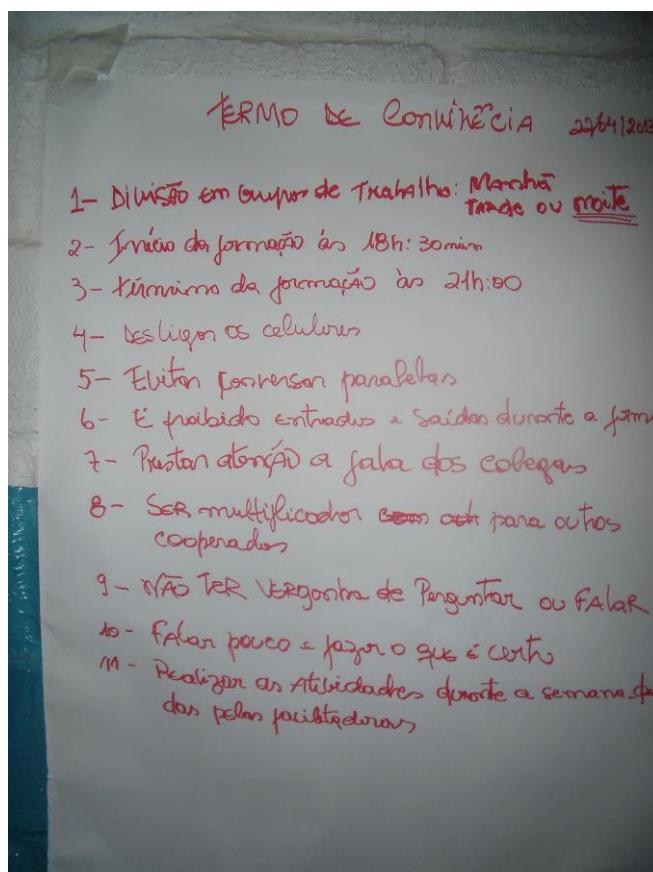 TERMO DE CONVINÊCIA 22/04/2013
1- DIVISÃO em Grupos de Trabalho: Manhã
TARDE OU noite
2- Início da formação às 18h:30min
3- término da formação às 21h:00
4- Desligar os celulares
5- Evitar conversar paralelas
6- É proibido entradas e saídas durante a form
7- Prestar atenção a fala dos colegas
8- SER multiplicador para outros
cooperados
9- NÃO TER VERGONHA de Perguntar ou FALAR
10- FALAR pouco e fazer o que é certo
11- Realizar as Atividades durante a semana
das pelas facilitadoras